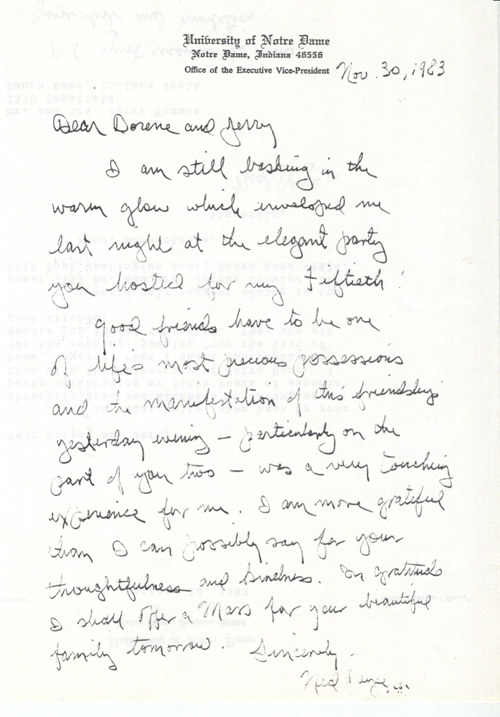 University of Notre Dame
Notre Dame, Indiana 46556
Office of the Executive Vice-President
Nov. 30, 1983
Dear Dorene and Jerry
I am still basking in the
warm glow which enveloped me
last night at the elegant party
you hosted for my Fiftieth!
Good friends have to be one
of life's most precious possessions
and the manifestation of this friendship
yesterday evening – particularly on the
part of you two – was a very touching
experience for me. I am more grateful
than I can possibly say for your
thoughtfulness and kindness. In gratitude
I shall offer a Mass for your beautiful
family tomorrow. Sincerely,
Ned